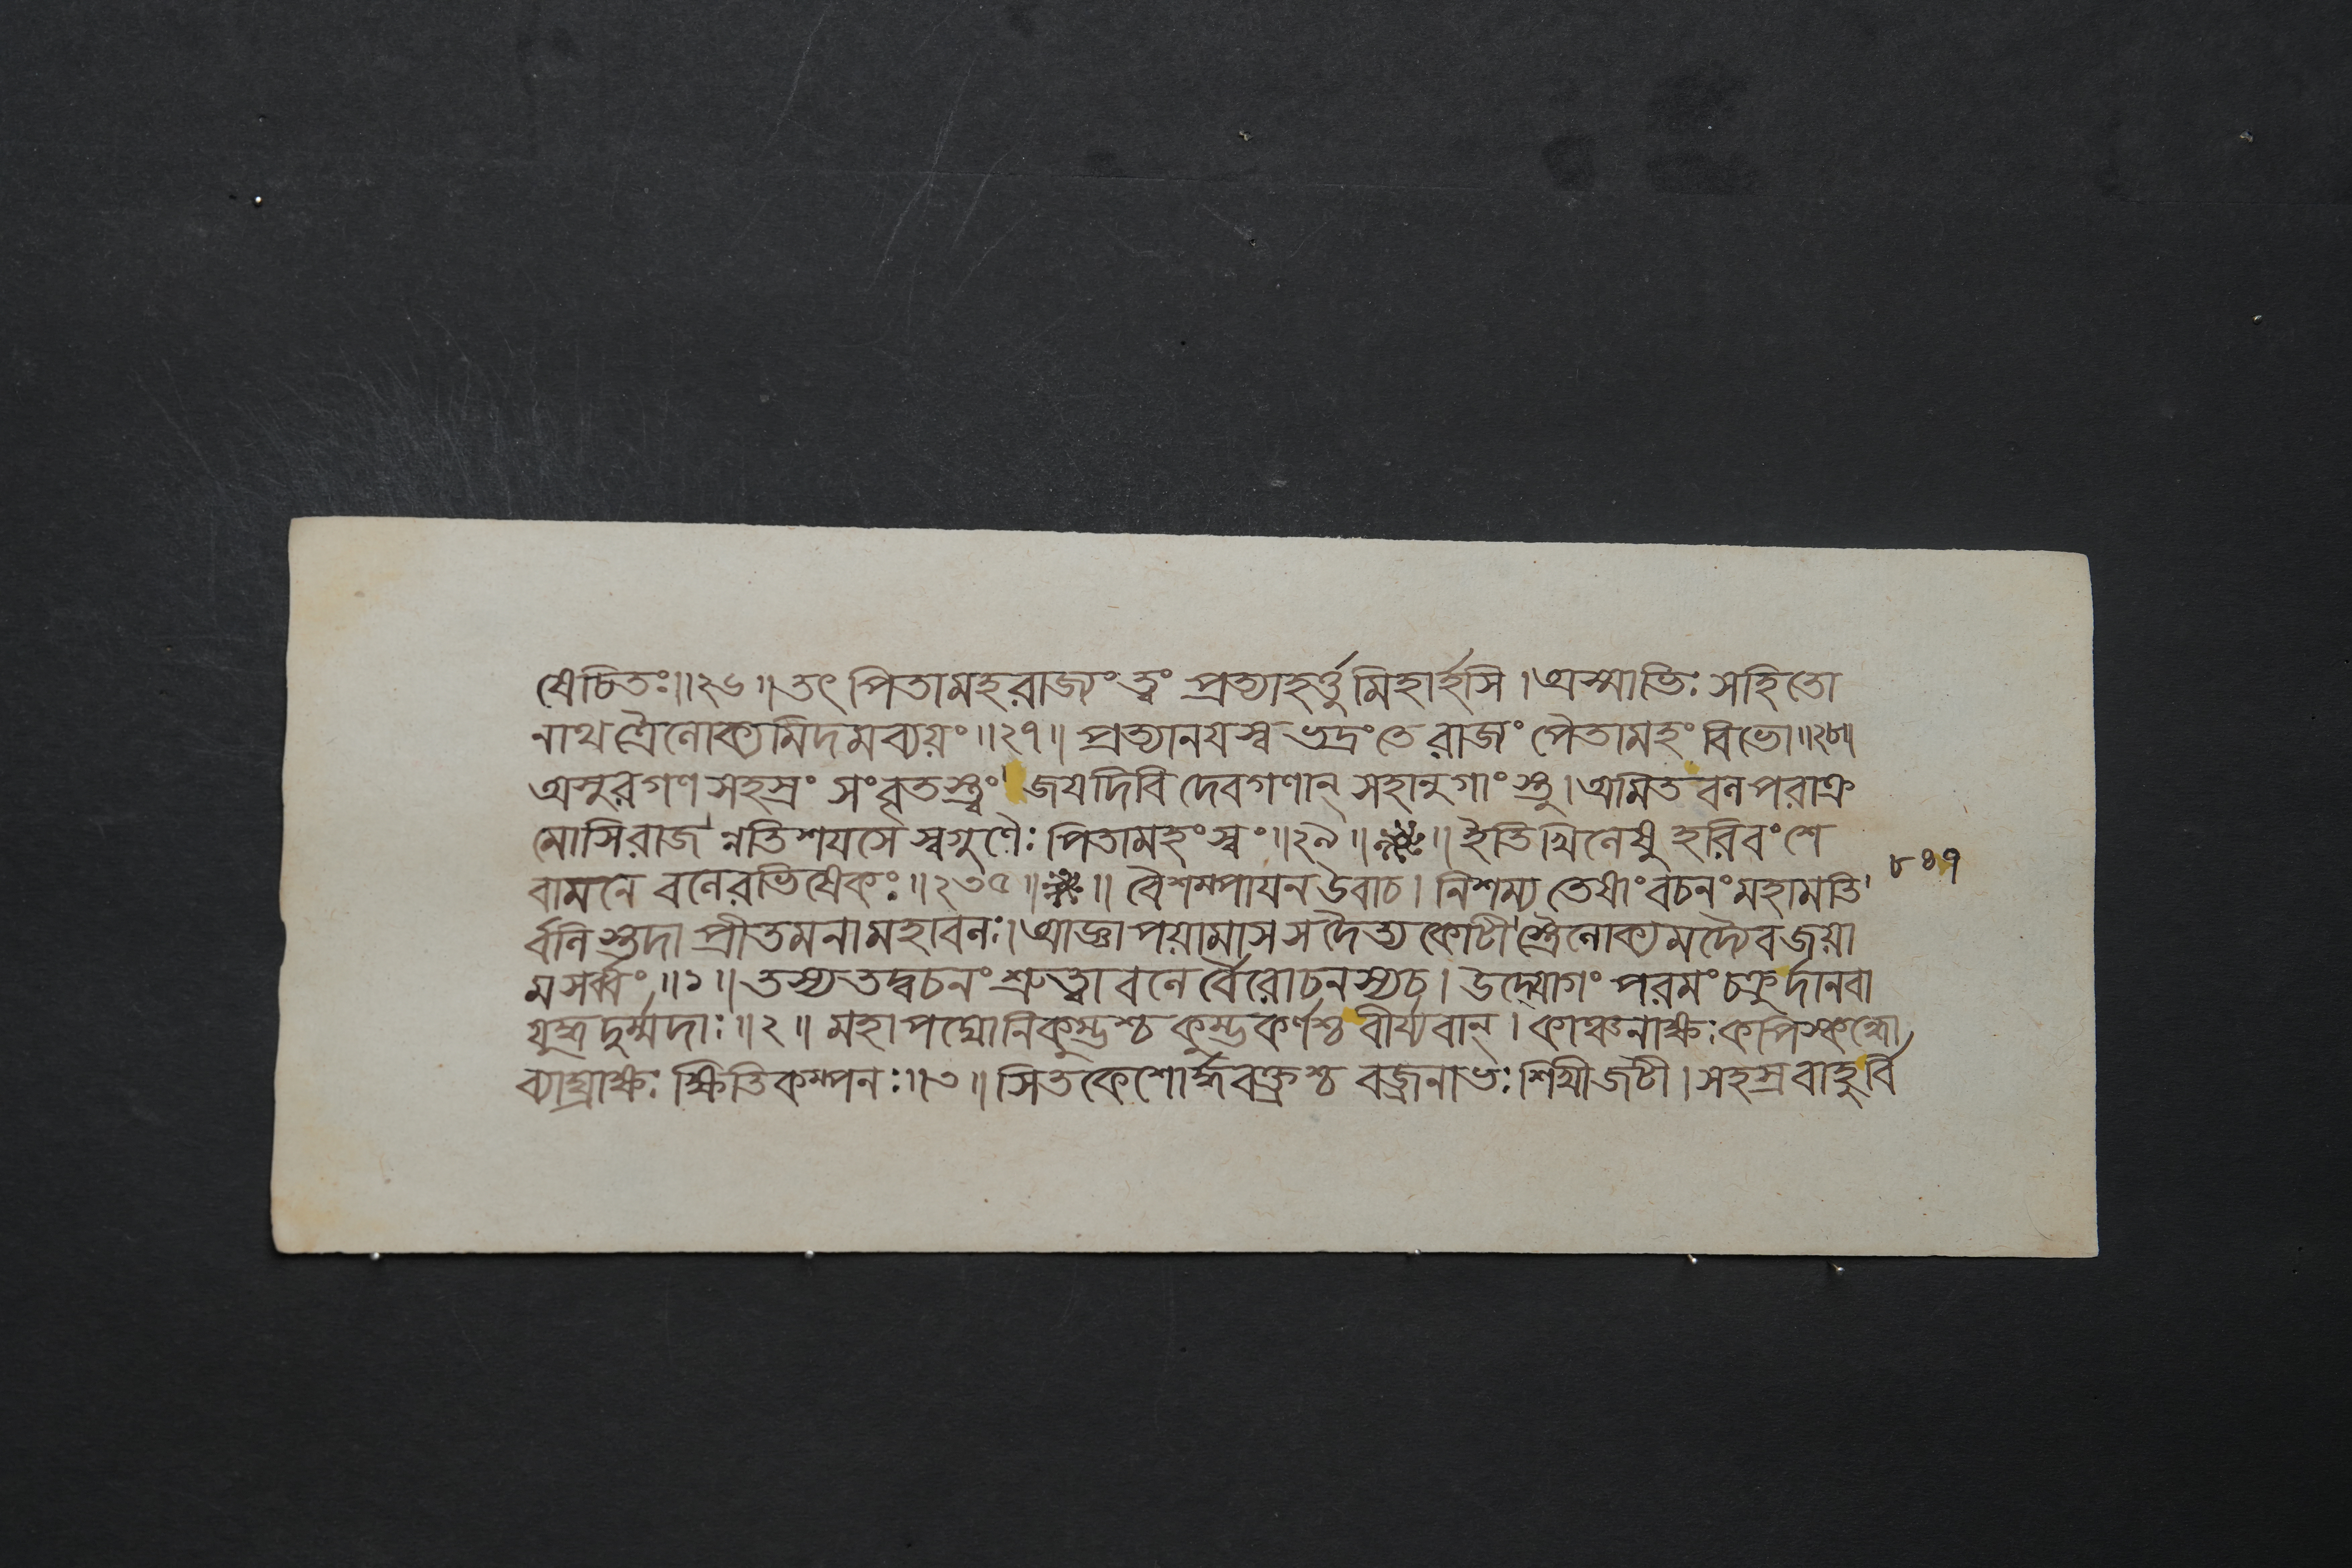 ষেচিতঃ॥২৬॥তৎ পিতামহরাজ্যংত্বং প্রত্যাহর্ত্তুমিহার্হসি।অস্মাভিঃ সহিতো
নাথত্রৈলোক্যমিদমব্যয়ং॥২৭॥ প্রত্যানযস্ব ভদ্রংতে রাজং পৈতামহং বিভো॥২৮॥
অসুরগণ সহস্রং সংবৃতস্ত্বং জযদিবি দেবগণান্ সহানুগাংস্তু।অমিত বল পরাক্র
মোসিরাজন্নতিশযসে স্বগুণৈঃ পিতামহংস্বং॥২৯॥ ॥ইতিখিলেষু হরিবংশে
বামনে বলেরভিষেকঃ॥২৩৫॥ ॥ বৈশম্পাযন উবাচ। নিশম্য তেষাং বচনং মহামতি
র্বলিস্তদা প্রীতমনামহাবলঃ।আজ্ঞাপয়ামাসস দৈত্য কোটীস্ত্রৈলোক্যমদ্যৈবজয়া
মসর্ব্বং॥১॥ তস্যতদ্বচনং শ্রুত্বা বলের্বৈরোচনস্যচ। উদ্যোগং পরমং চক্রুর্দানবা
যুদ্ধদুর্ম্মদাঃ॥২॥ মহাপদ্মোনিকুম্ভশ্চ কুম্ভকর্ণশ্চ বীর্য্যবান্। কাঞ্চনাক্ষঃ কপিস্কন্ধো
ব্যাঘ্রাক্ষঃ ক্ষিতিকম্পনঃ॥৩॥ সিতকেশোর্দ্ধবক্ত্রশ্চ বজ্রনাভঃ শিখীজটী।সহস্রবাহুর্বি
৮৪৭